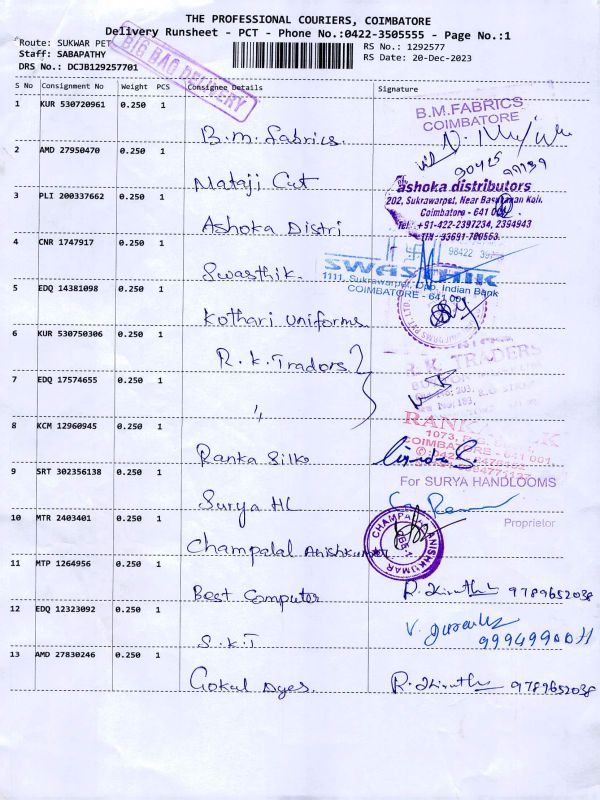 THE PROFESSIONAL COURIERS, COIMBATORE
Delivery Runsheet - PCT - Phone No.:0422-3505555 - Page No.:1
Route: SUKWAR PET
RS No.: 1292577
Staff: SABAPATHY
RS Date: 20-Dec-2023
DRS No.: DCJB129257701
BIG BAG DELIVERY
S No Consignment No Weight PCS Consignee Details Signature
1 KUR 530720961 0.250 1
B.M.FABRICS
COIMBATORE
B.M. Fabrics.
2 AMD 27950470 0.250 1
Mataji Cut
3 PLI 200337662 0.250 1
ashoka distributors
Coimbatore - 641
Tel: +91-422-2397234, 2394943
Ashoka Distri
4 CNR 1747917 0.250 1
98422
Swasthik.
SWASTHIK
1111, Sukrawarpet, Opp. Indian Bank
COIMBATORE - 641 001
5 EDQ 14381098 0.250 1
Kothari Uniforms
6 KUR 530750306 0.250 1
R.K. TRADERS
R.K. Tradors
7 EDQ 17574655 0.250 1
"
8 KCM 12960945 0.250 1
1073,
COIMBATORE - 641 001
Ranka Silks
9 SRT 302356138 0.250 1
For SURYA HANDLOOMS
Surya HL
Proprietor
10 MTR 2403401 0.250 1
CHAMPALAL ANISHKUMAR
CBE-1
Champalal Anishkumar
11 MTP 1264956 0.250 1
Best Computer
9789652038
12 EDQ 12323092 0.250 1
S.K.T
13 AMD 27830246 0.250 1
Gokal Dyes.
9789652038